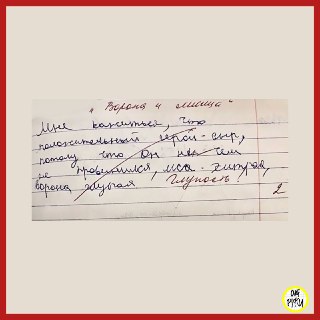 „Ворона и лисица“
Мне кажиться, что
положительный герой - сыр,
потому что он чем
не провинился, лиса - хитрая,
ворона глупая Глупость!
2